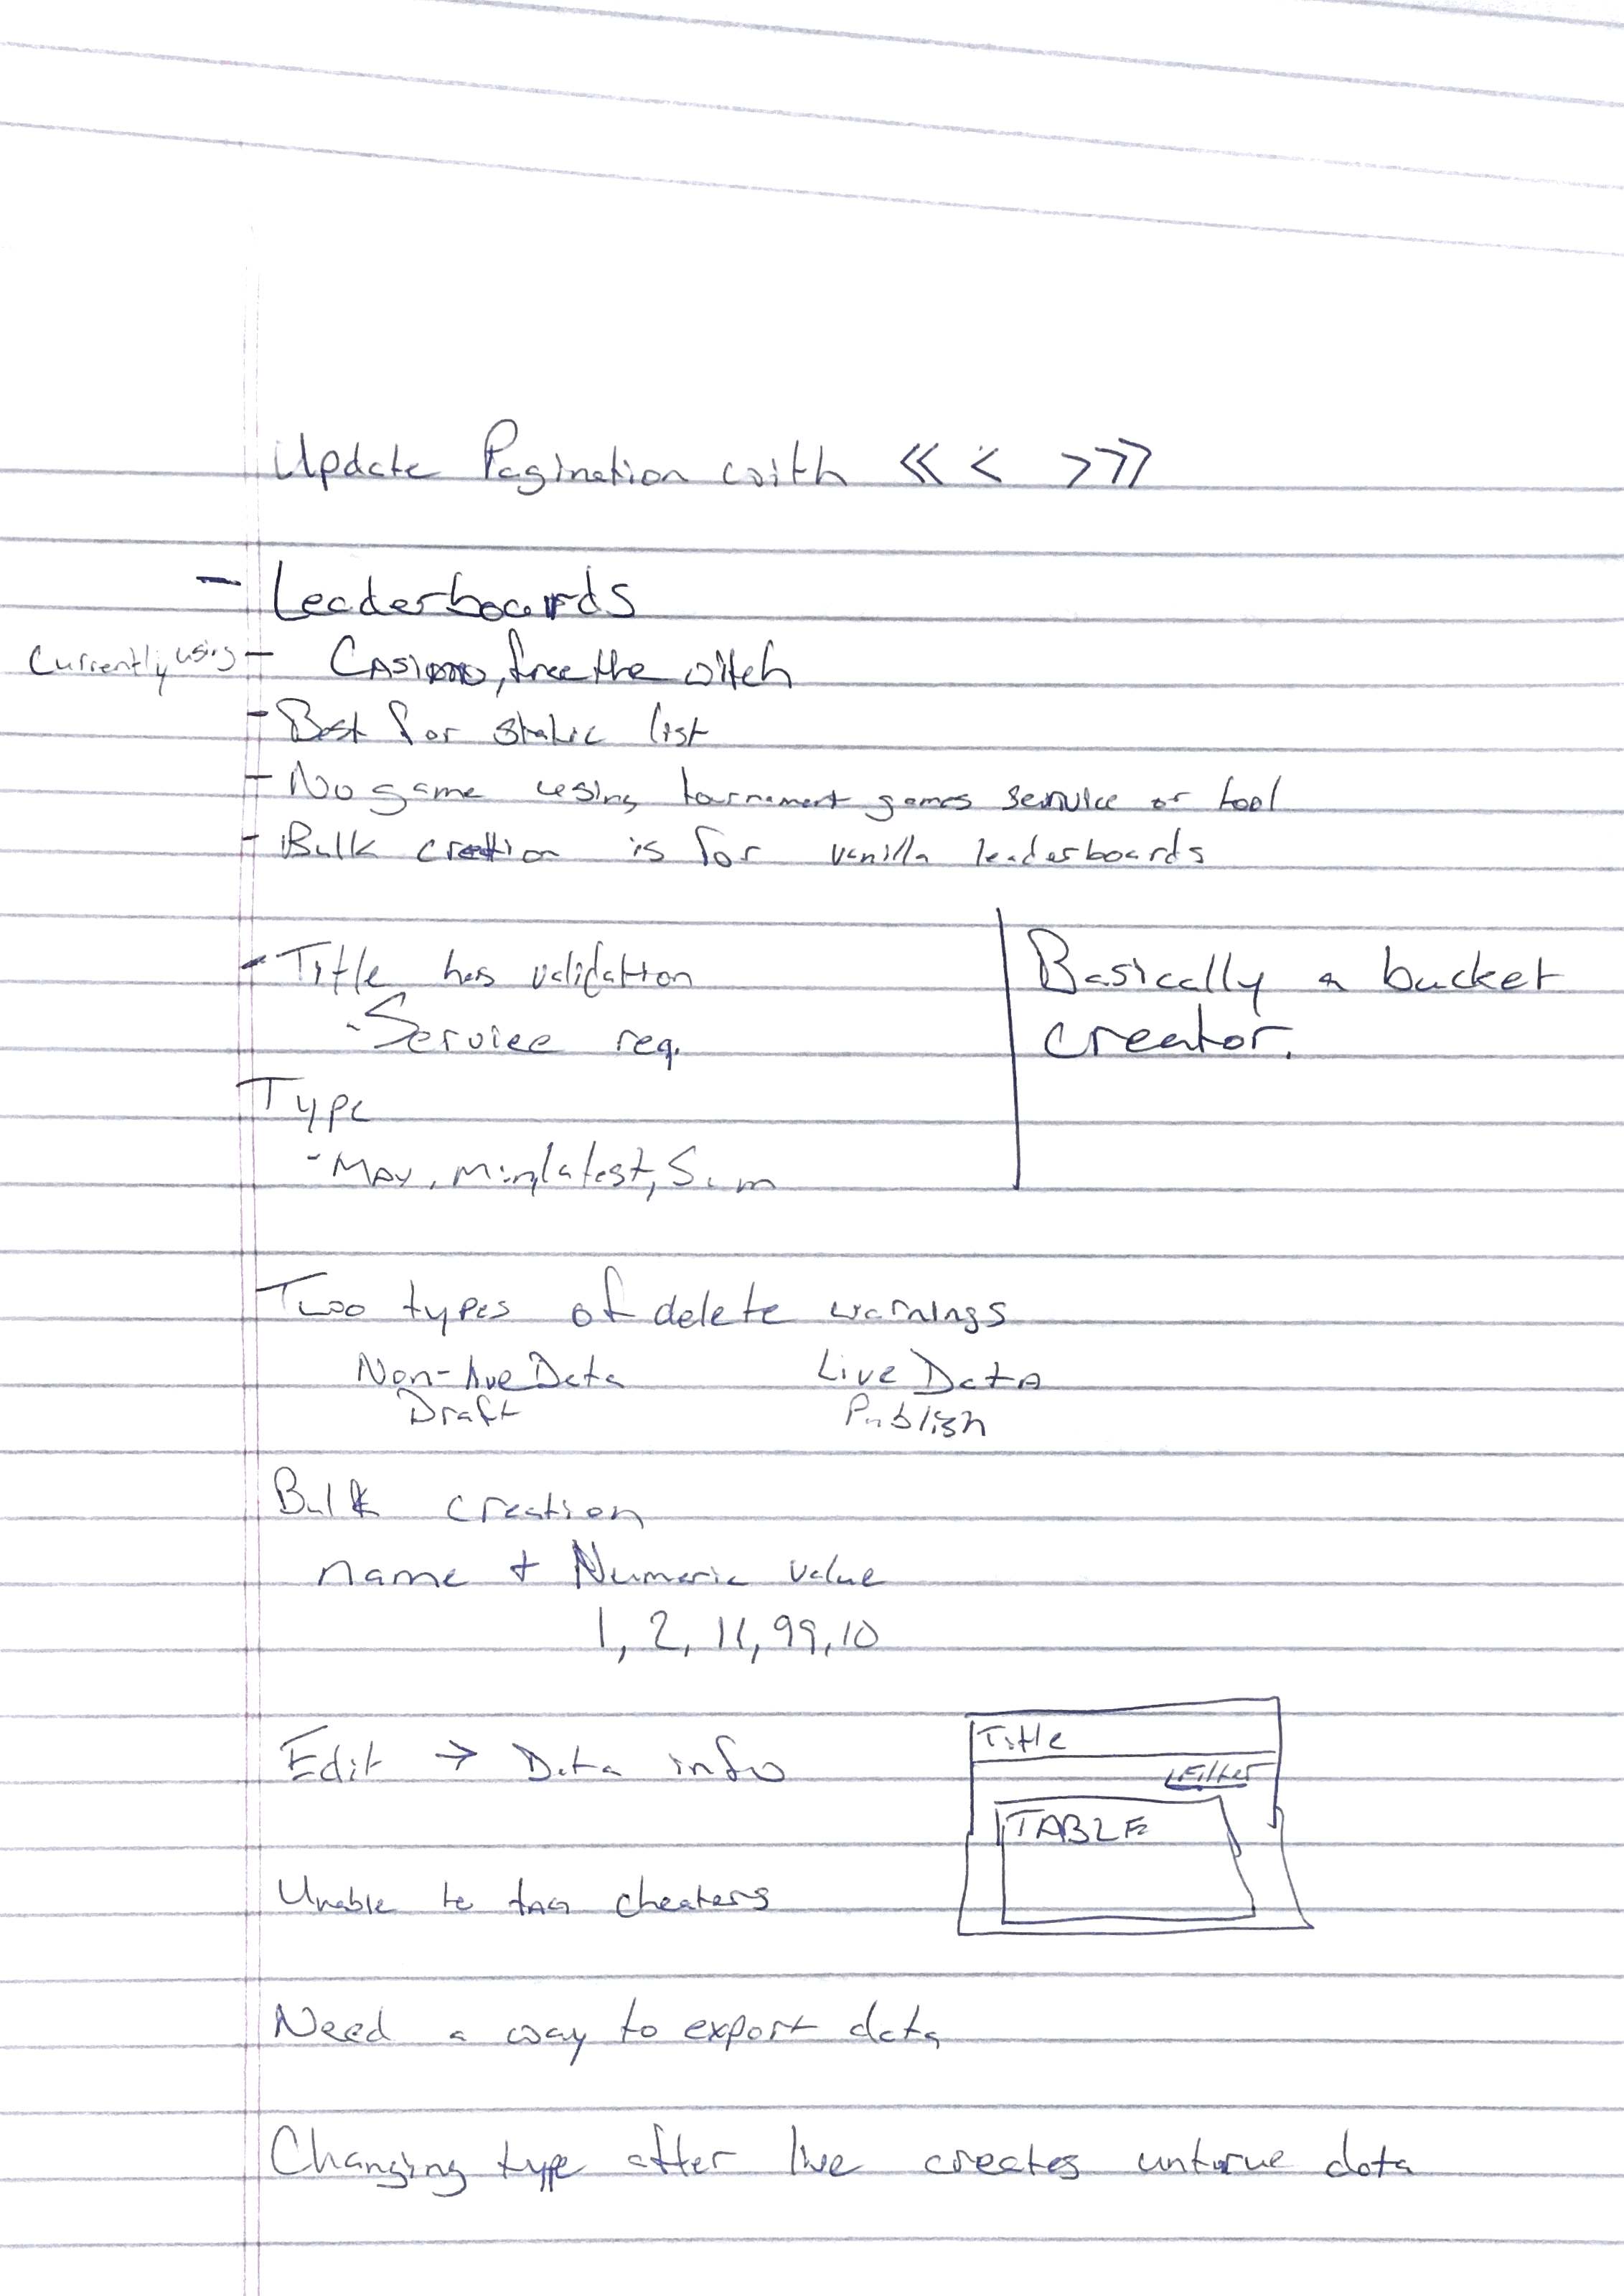 Update Pagination with << < > >>
- Leaderboards
Currently using - Casino, free the witch
- Best for static list
- No game using tournament games service or tool
- Bulk creation is for vanilla leaderboards
- Title has validation
- Service req.
Basically a bucket
creator.
Type
- Max, min, latest, Sum
Two types of delete warnings
Non-live Data
Draft
Live Data
Publish
Bulk creation
name + Numeric value
1, 2, 11, 99, 10
Edit → Data info
Title
Filter
TABLE
Unable to tag cheaters
Need a way to export data
Changing type after live creates untrue data